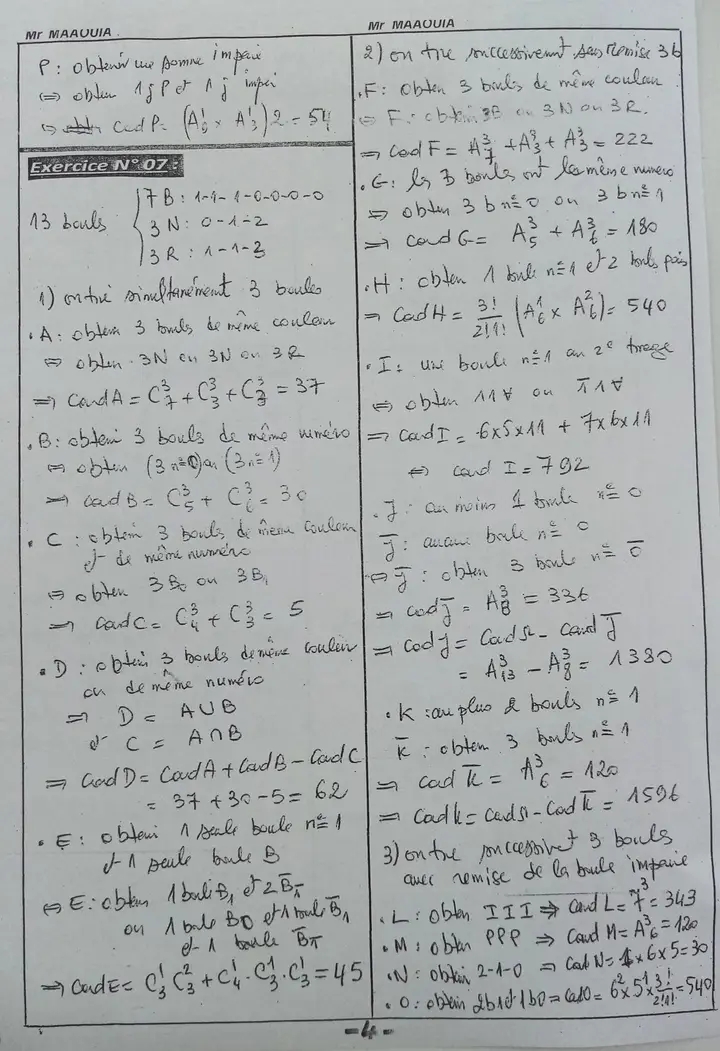 Mr MAAOUIA
P : obtenir une somme impaire
⇔ obten 1 j P et 1 j impai
⇔ Cad P = (A¹₆ × A¹₃) 2 = 54
Exercice N° 07 :
13 bouls { 7 B : 1-1-1-0-0-0-0
3 N : 0-1-2
3 R : 1-1-2
1) on tire simultanément 3 boules
. A : obtenir 3 bouls de même couleur
⇔ obten 3N ou 3N ou 3R
⇒ Card A = C³₇ + C³₃ + C³₃ = 37
. B : obtenir 3 bouls de même numéro
⇔ obten (3 n=0) ou (3 n=1)
⇒ Card B = C³₅ + C³₆ = 30
. C : obtenir 3 bouls de même couleur
et de même numéro
⇔ obten 3B₀ ou 3B₁
⇒ Card C = C³₄ + C³₃ = 5
. D : obtenir 3 bouls de même couleur
ou de même numéro
⇒ D = A∪B
et C = A∩B
⇒ Card D = Card A + Card B - Card C
= 37 + 30 - 5 = 62
. E : obteni 1 seule boule n=1
et 1 seule boule B
⇔ E : obten 1 boule B₁ et 2
ou 1 boule B0 et 1 boule
et 1 boule
⇒ Card E = C¹₃ C²₃ + C¹₄ . C¹₃ . C¹₃ = 45
Mr MAAOUIA
2) on tire successivement sans remise 3b
. F : obten 3 bouls de même couleur
⇔ F : obtenir 3B ou 3N ou 3R.
⇒ Card F = A³₇ + A³₃ + A³₃ = 222
. G : les 3 bouls ont le même numero
⇔ obten 3 b n=0 ou 3 b n=1
⇒ Card G = A³₅ + A³₆ = 180
. H : obten 1 boule n=1 et 2 bouls pais
⇒ Card H = 3!/2!1! (A¹₆ × A²₆) = 540
. I : une boule n=1 au 2e tirage
⇔ obten 11∀ ou 1̅1∀
⇒ Card I = 6×5×11 + 7×6×11
⇔ card I = 792
. J : au moins 1 boule n=0
J̅ : aucune boule n=0
⇔ J̅ : obten 3 boule n=0̅
⇒ card J̅ = A³₈ = 336
⇒ card J = Card Ω - Card J̅
= A³₁₃ - A³₈ = 1380
. K : au plus 2 bouls n=1
K̅ : obten 3 bouls n=1
⇒ card K̅ = A³₆ = 120
⇒ Card K = Card Ω - Card K̅ = 1596
3) on tire successivet 3 bouls
avec remise de la boule impaire
. L : obten III ⇒ Card L = 7³ = 343
. M : obten PPP ⇒ Card M = A³₆ = 120
. N : obteni 2-1-0 ⇒ Card N = 1×6×5 = 30
. O : obtein 2b1 et 1b0 ⇒ Card O = 6²×5¹×3!/2!1! = 540
-4-